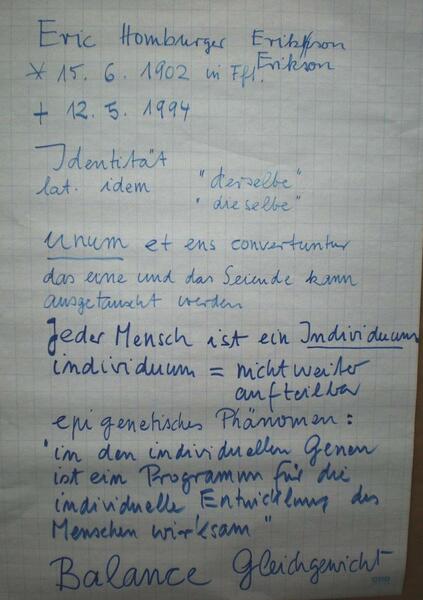 Eric Homburger Erikson
Erikson
* 15. 6. 1902 in Ffl.
+ 12. 5. 1994
Identität
lat. idem "derselbe"
"dieselbe"
unum et ens convertuntur
das eine und das Seiende kann
ausgetauscht werden
Jeder Mensch ist ein Individuum
individuum = nicht weiter
aufteilbar
epigenetisches Phänomen:
"in den individuellen Genen
ist ein Programm für die
individuelle Entwicklung des
Menschen wirksam"
Balance Gleichgewicht